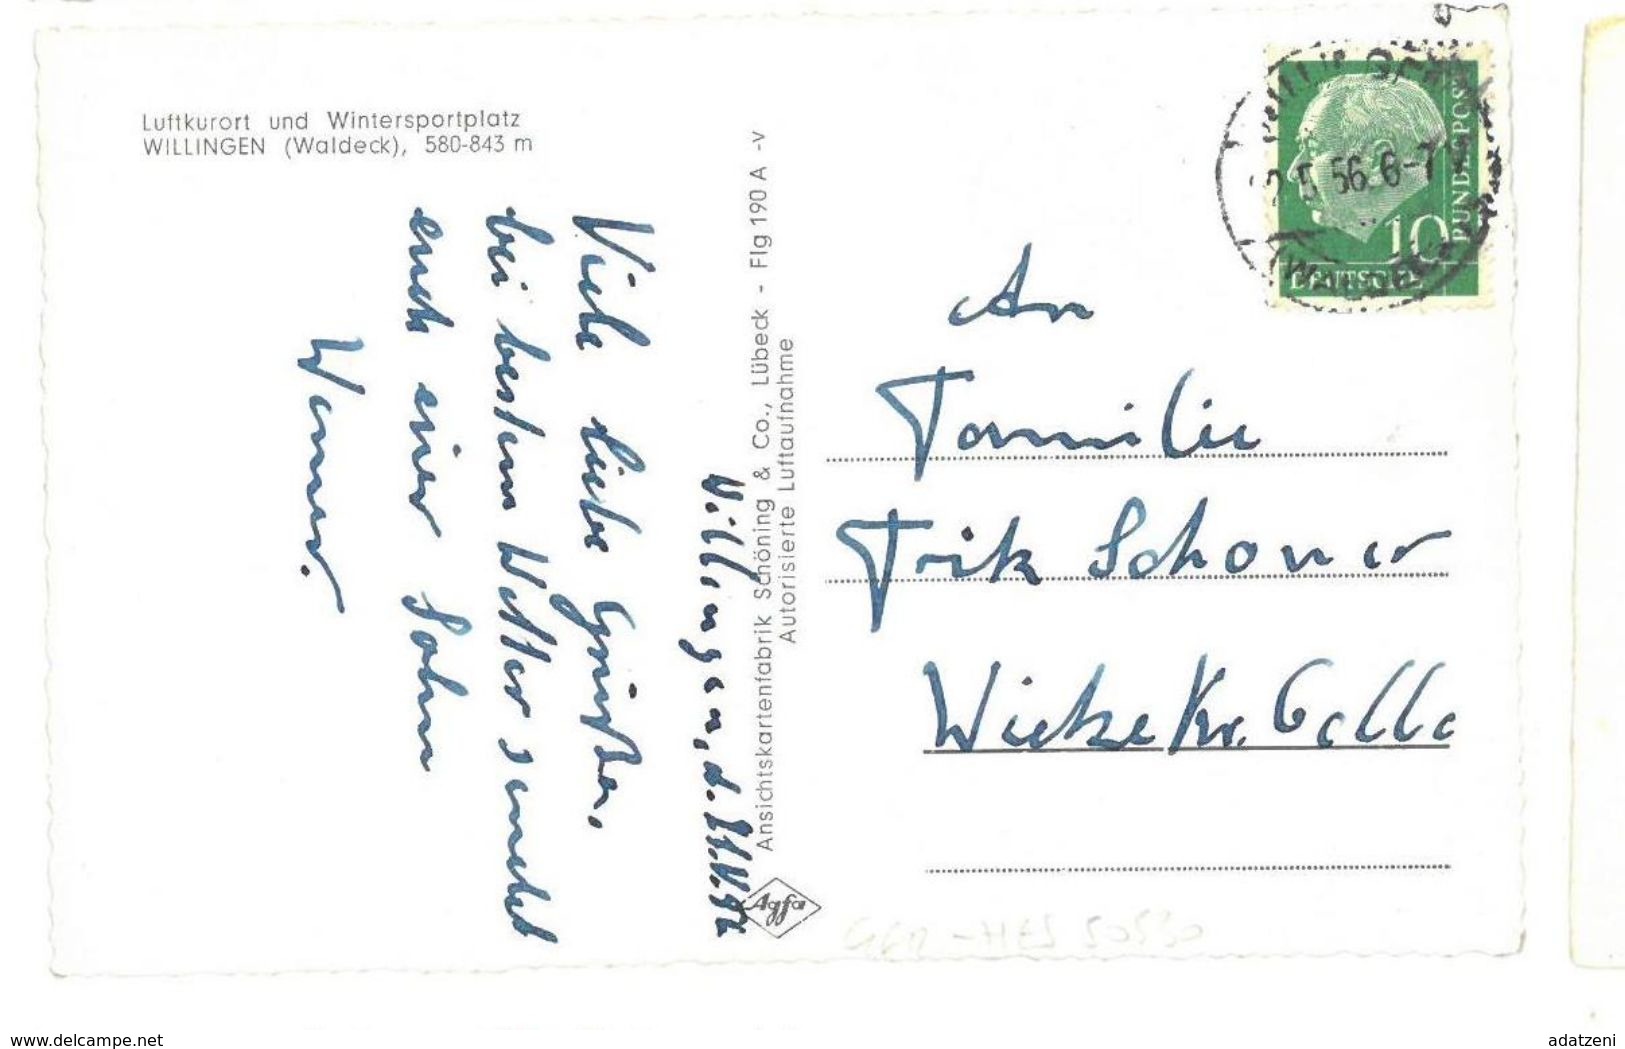 Luftkurort und Wintersportplatz
WILLINGEN (Waldeck), 580-843 m
Willingen, d.
Viele liebe Grüße
bei bestem Wetter sendet
euch euer Sohn
Werner.
Ansichtskartenfabrik Schöning & Co., Lübeck - Flg 190 A -v
Autorisierte Luftaufnahme
Agfa
56. 6-7
(WALDECK)
10
DEUTSCHE
BUNDESPOST
An
Familie
Frik Schoner
Wietze Kr. Celle
GER-HES 50530
www.delcampe.net
adatzeni